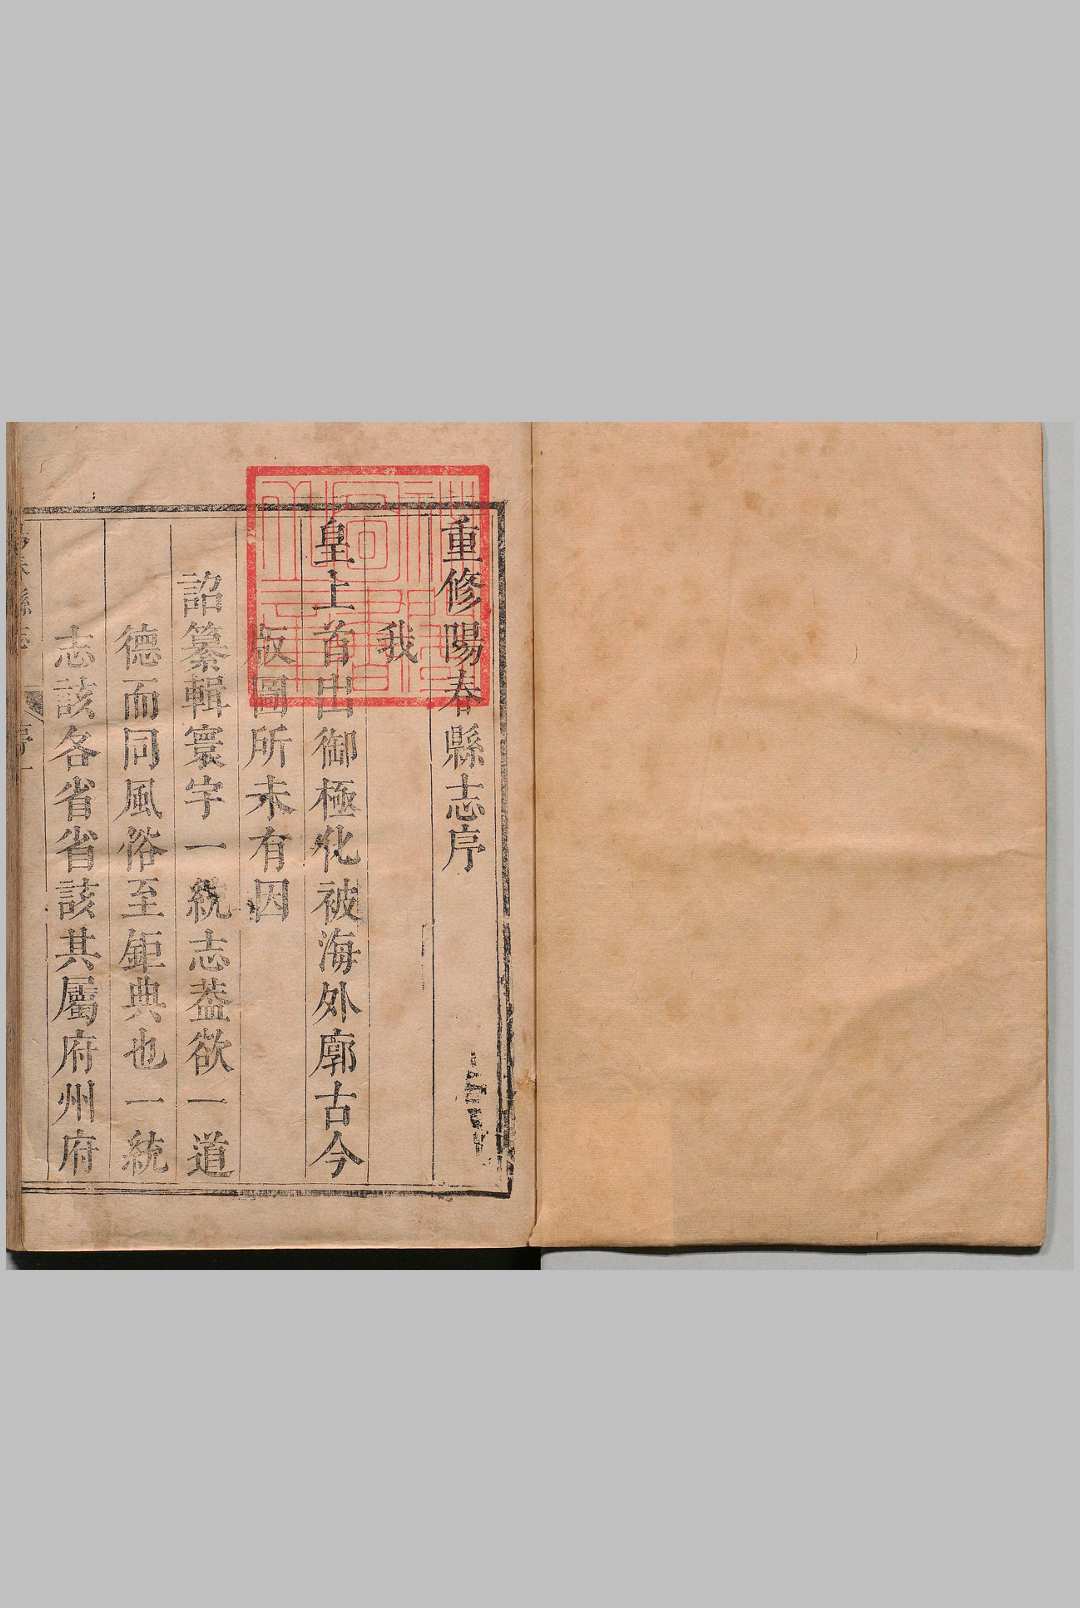 重修陽春縣志序
我
皇上首出御極化被海外廓古今
版圖所未有因
詔纂輯寰宇一統志葢欲一道
德而同風俗至鉅典也一統
志該各省省該其屬府州府